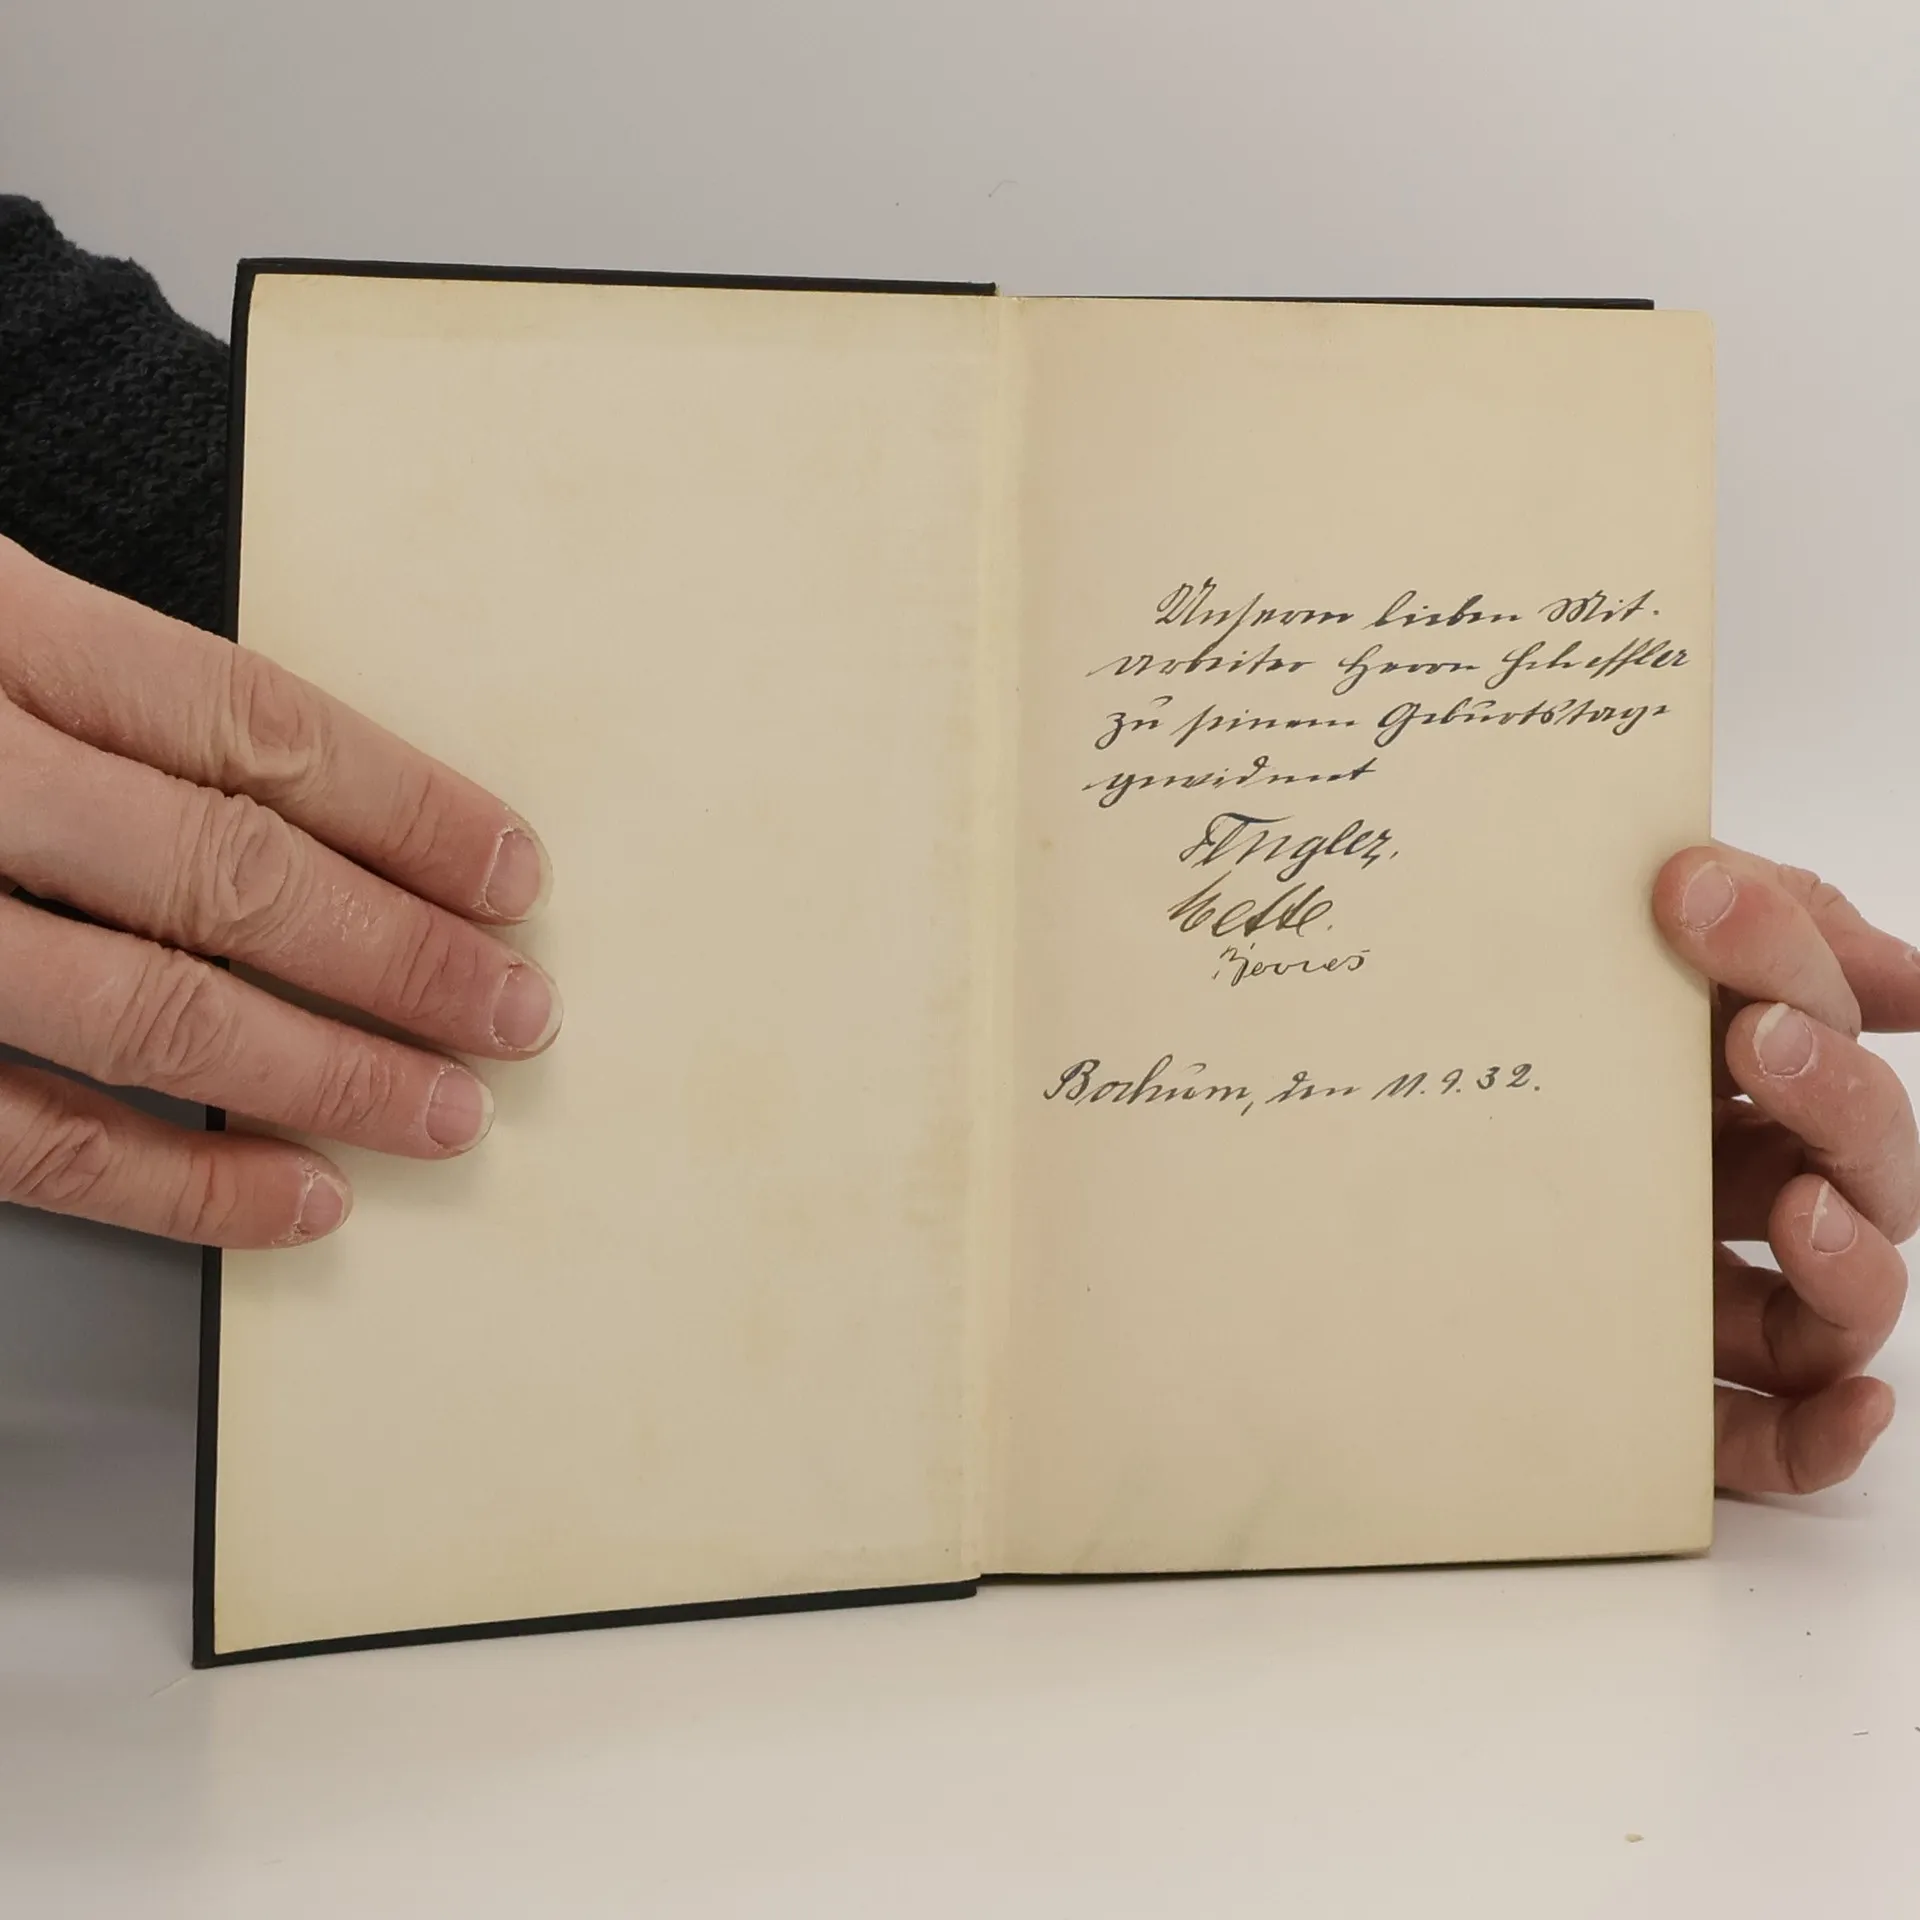 Unserm lieben Mit-
arbeiter Herrn Scheffler
zu seinem Geburtstage
gewidmet
Bochum, den 11.9.32.